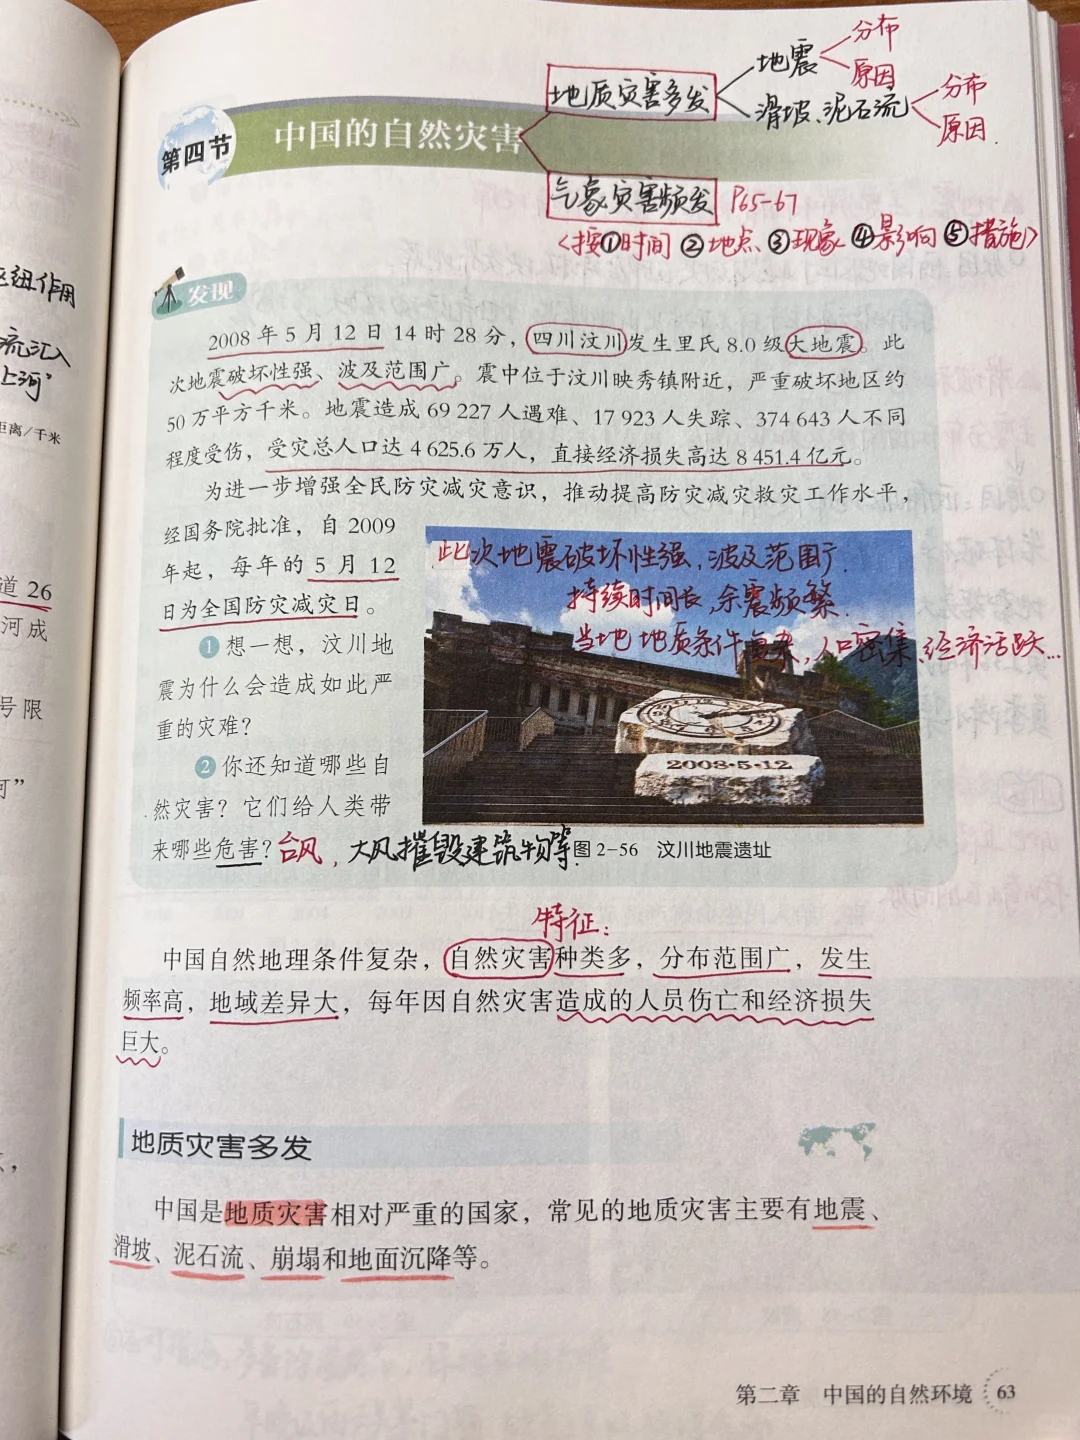 地质灾害多发
地震
分布
原因
滑坡、泥石流
分布
原因.
第四节
中国的自然灾害
气象灾害频发 P65-67
<按①时间 ②地点、③现象 ④影响 ⑤措施>
发现
2008 年 5 月 12 日 14 时 28 分，四川汶川发生里氏 8.0 级大地震。此
次地震破坏性强、波及范围广。震中位于汶川映秀镇附近，严重破坏地区约
50 万平方千米。地震造成 69 227 人遇难、17 923 人失踪、374 643 人不同
程度受伤，受灾总人口达 4 625.6 万人，直接经济损失高达 8 451.4 亿元。
为进一步增强全民防灾减灾意识，推动提高防灾减灾救灾工作水平，
经国务院批准，自 2009
年起，每年的 5 月 12
日为全国防灾减灾日。
1 想一想，汶川地
震为什么会造成如此严
重的灾难？
2 你还知道哪些自
然灾害？它们给人类带
来哪些危害？台风，大风摧毁建筑物等.
此次地震破坏性强，波及范围广.
持续时间长，余震频繁.
当地地质条件复杂，人口密集、经济活跃...
2008·5·12
图 2-56 汶川地震遗址
特征：
中国自然地理条件复杂，自然灾害种类多，分布范围广，发生
频率高，地域差异大，每年因自然灾害造成的人员伤亡和经济损失
巨大。
地质灾害多发
中国是地质灾害相对严重的国家，常见的地质灾害主要有地震、
滑坡、泥石流、崩塌和地面沉降等。
第二章 中国的自然环境 63
枢纽作用
流汇入
上河'
距离/千米
道 26
河成
号限
河”